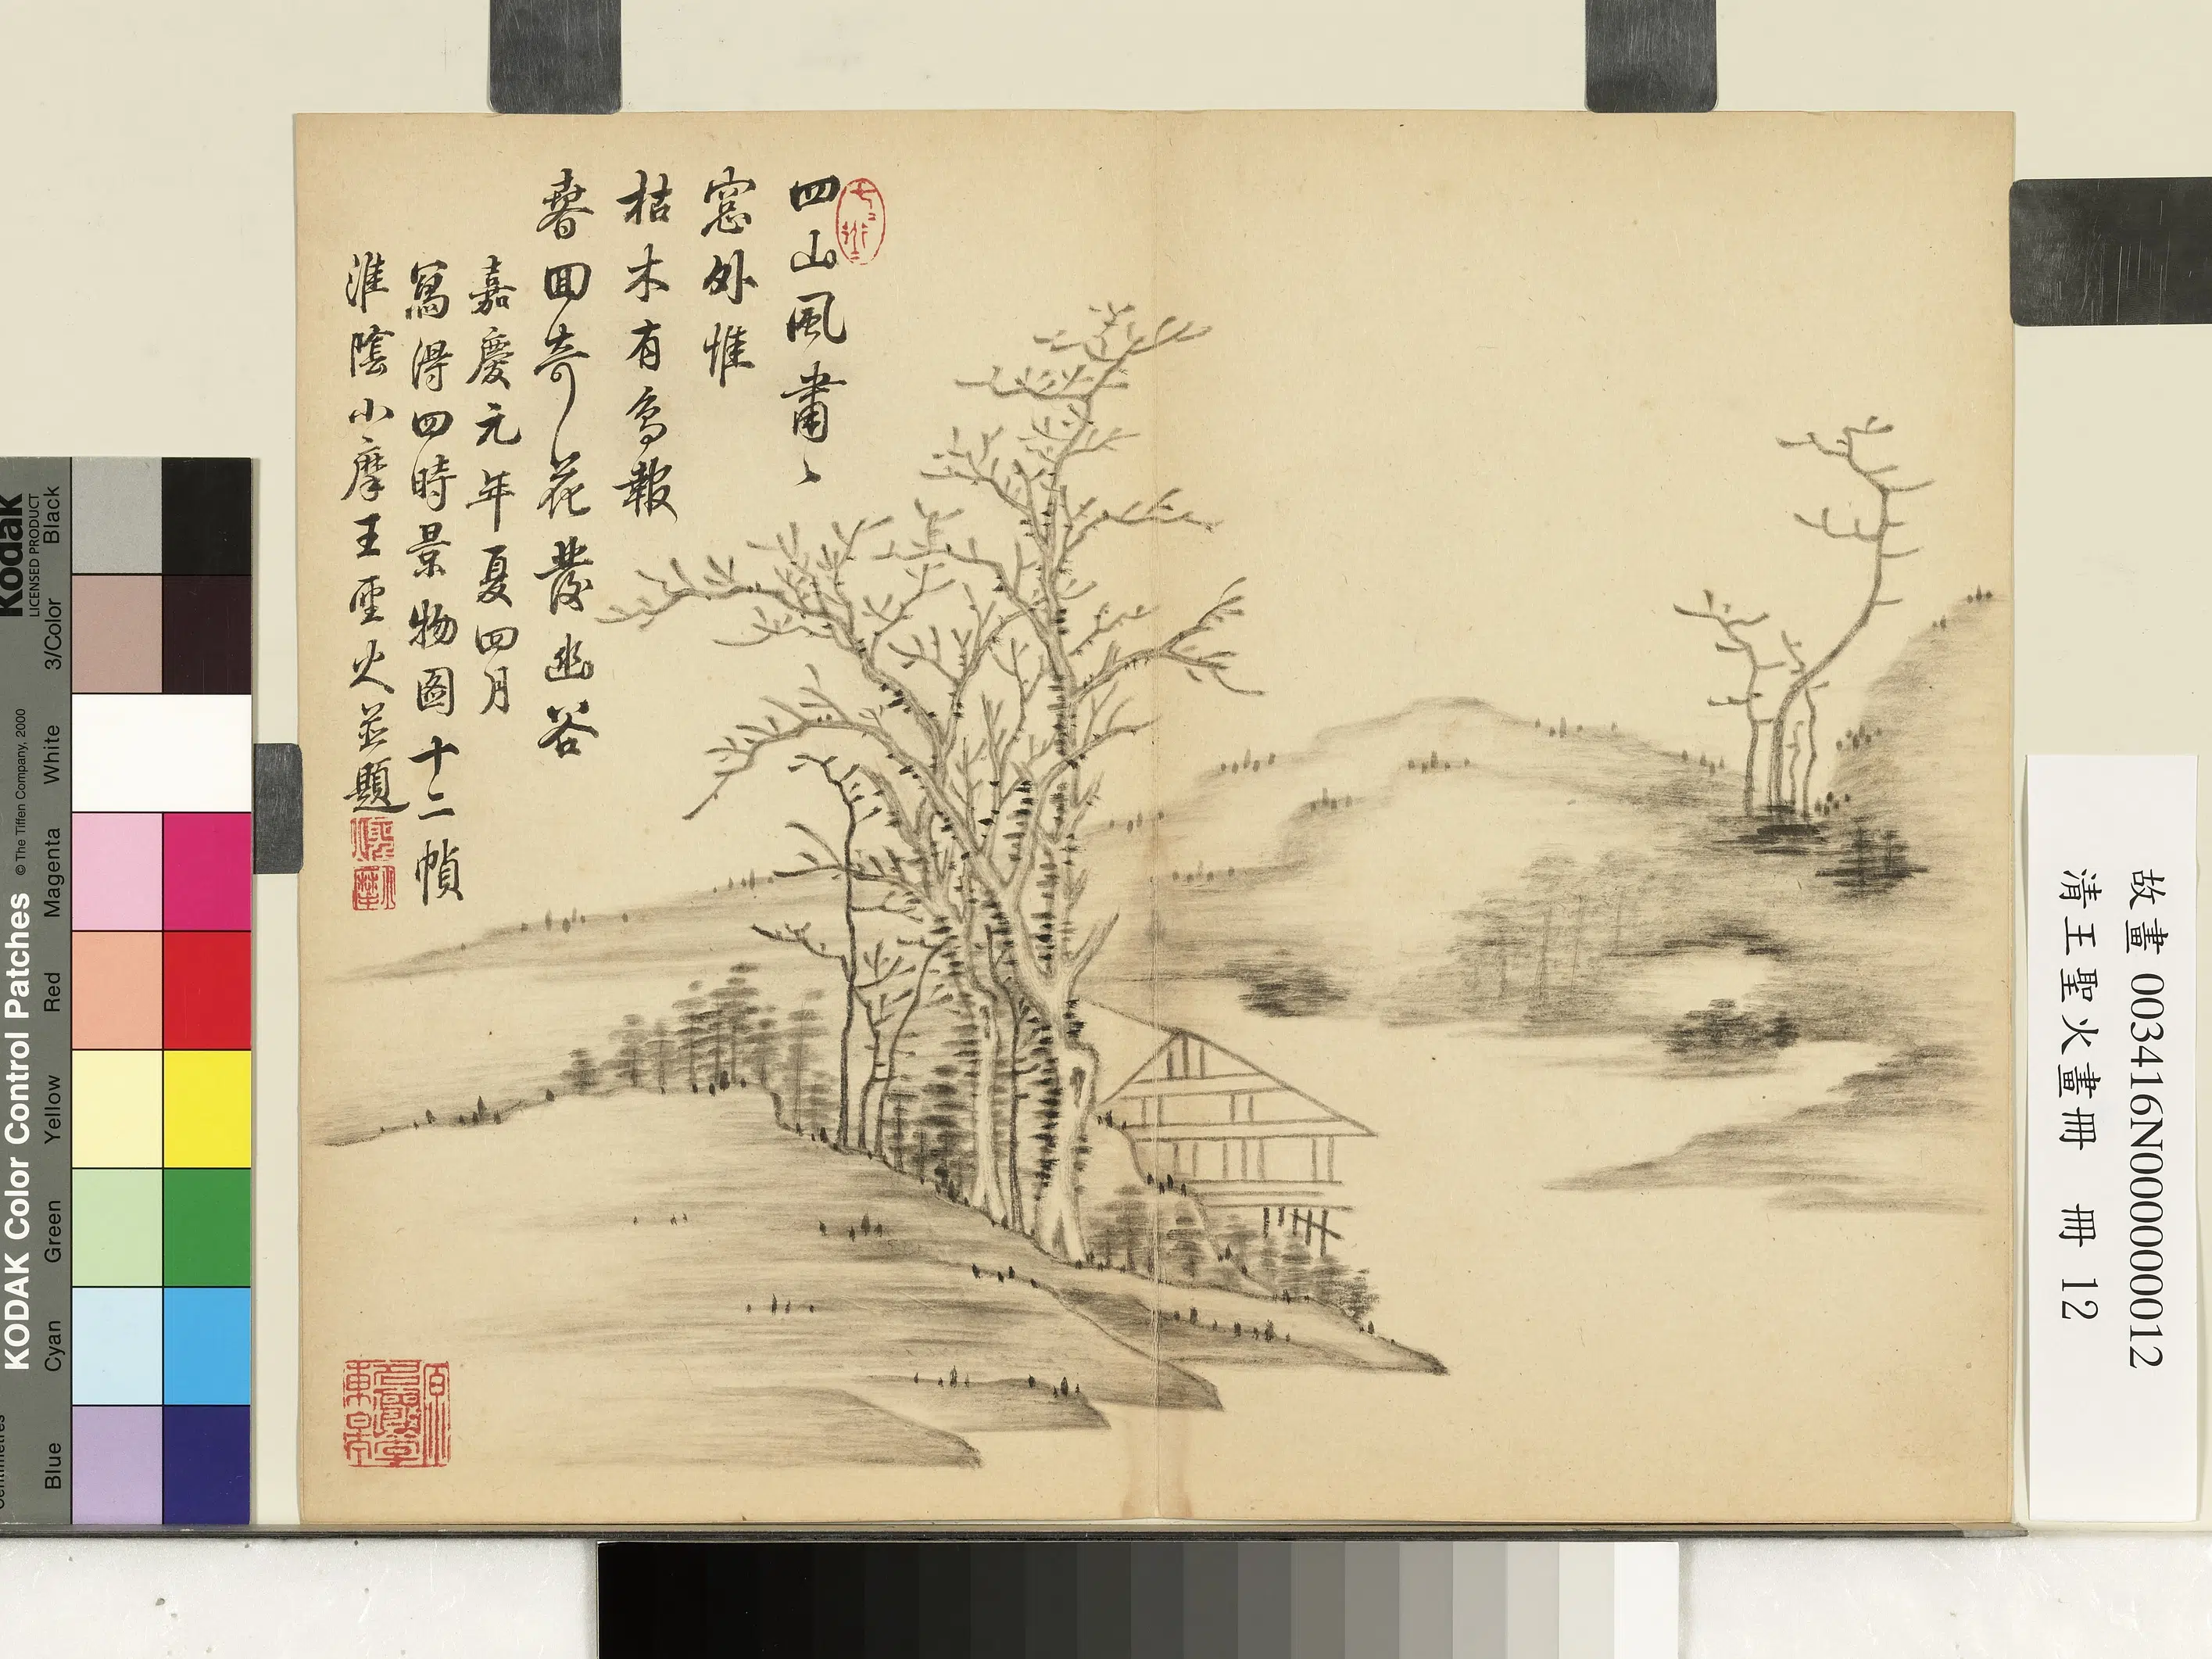 四山風肅〻
窓外惟
枯木有鳥報
春回奇花發幽谷
嘉慶元年夏四月
寫得四時景物圖十二幀
淮陰小摩王聖火並題
故畫 003416N000000012
清王聖火畫冊 冊 12
KODAK Color Control Patches
© The Tiffen Company, 2000
Kodak
LICENSED PRODUCT
Blue
Cyan
Green
Yellow
Red
Magenta
White
3/Color
Black